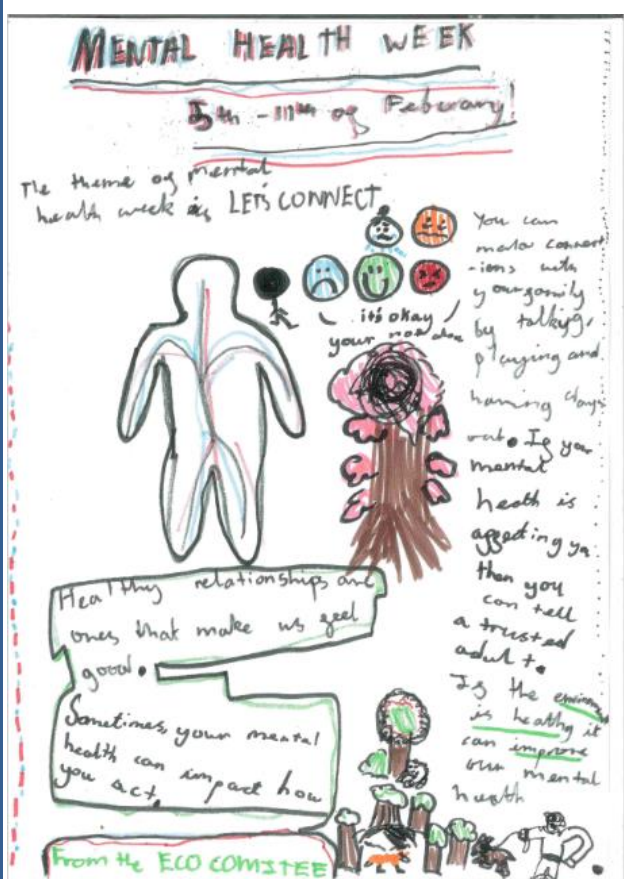 MENTAL HEALTH WEEK
5th - 11th of Feberary!
The theme of mental
health week is LET'S CONNECT
it's okay
your not alone
You can
make connect
-ions with
your family
by talking,
playing and
having days
out. If your
mental
heath is
affecting you
then you
can tell
a trusted
adult.
If the
is heathy it
can improve
our mental
health
Healthy relationships are
ones that make us feel
good.
Sometimes, your mental
health can impact how
you act.
From the ECO COMITEE